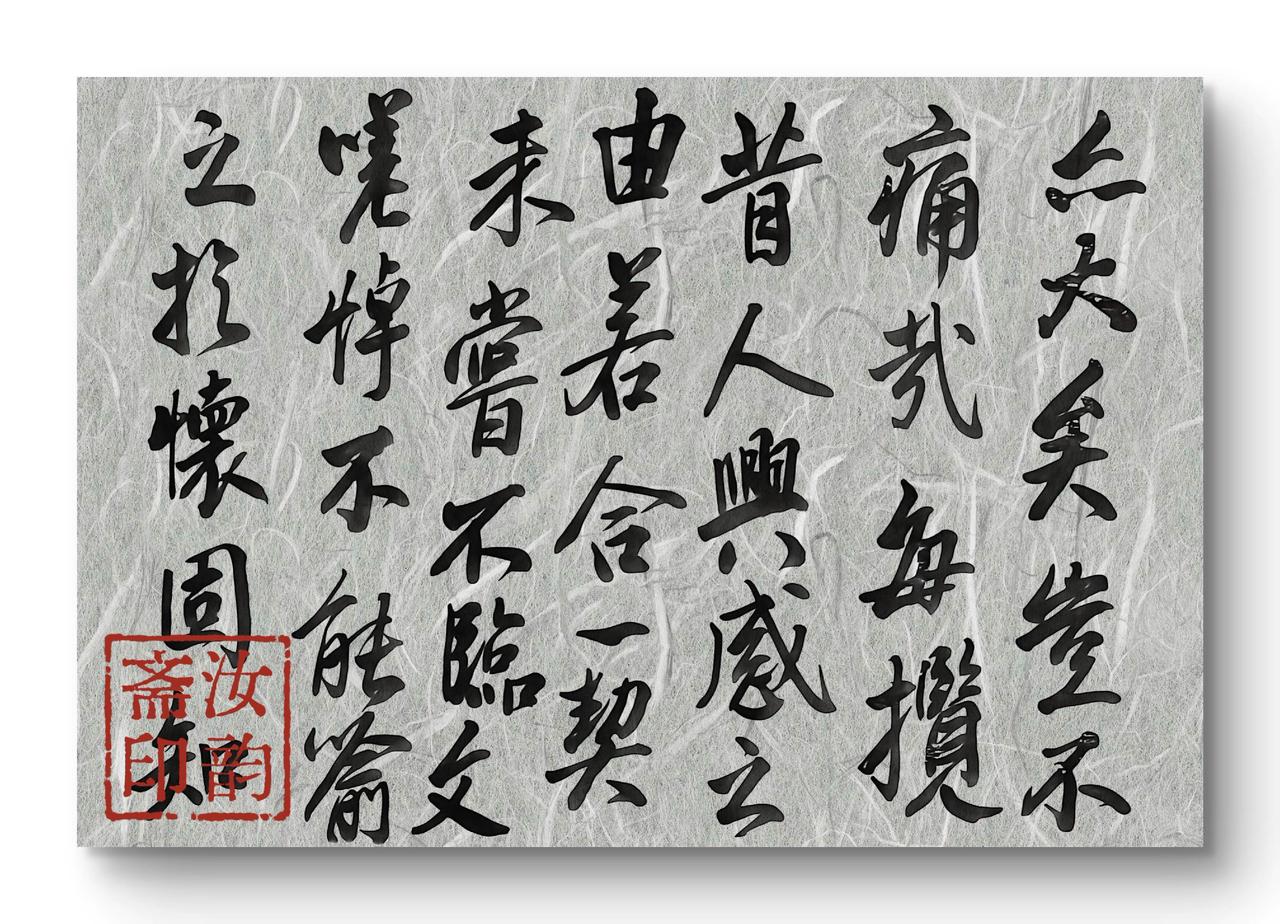 亦大矣豈不
痛哉每攬
昔人興感之
由若合一契
未嘗不臨文
嗟悼不能喻
之於懷固知
汝韵
斋印